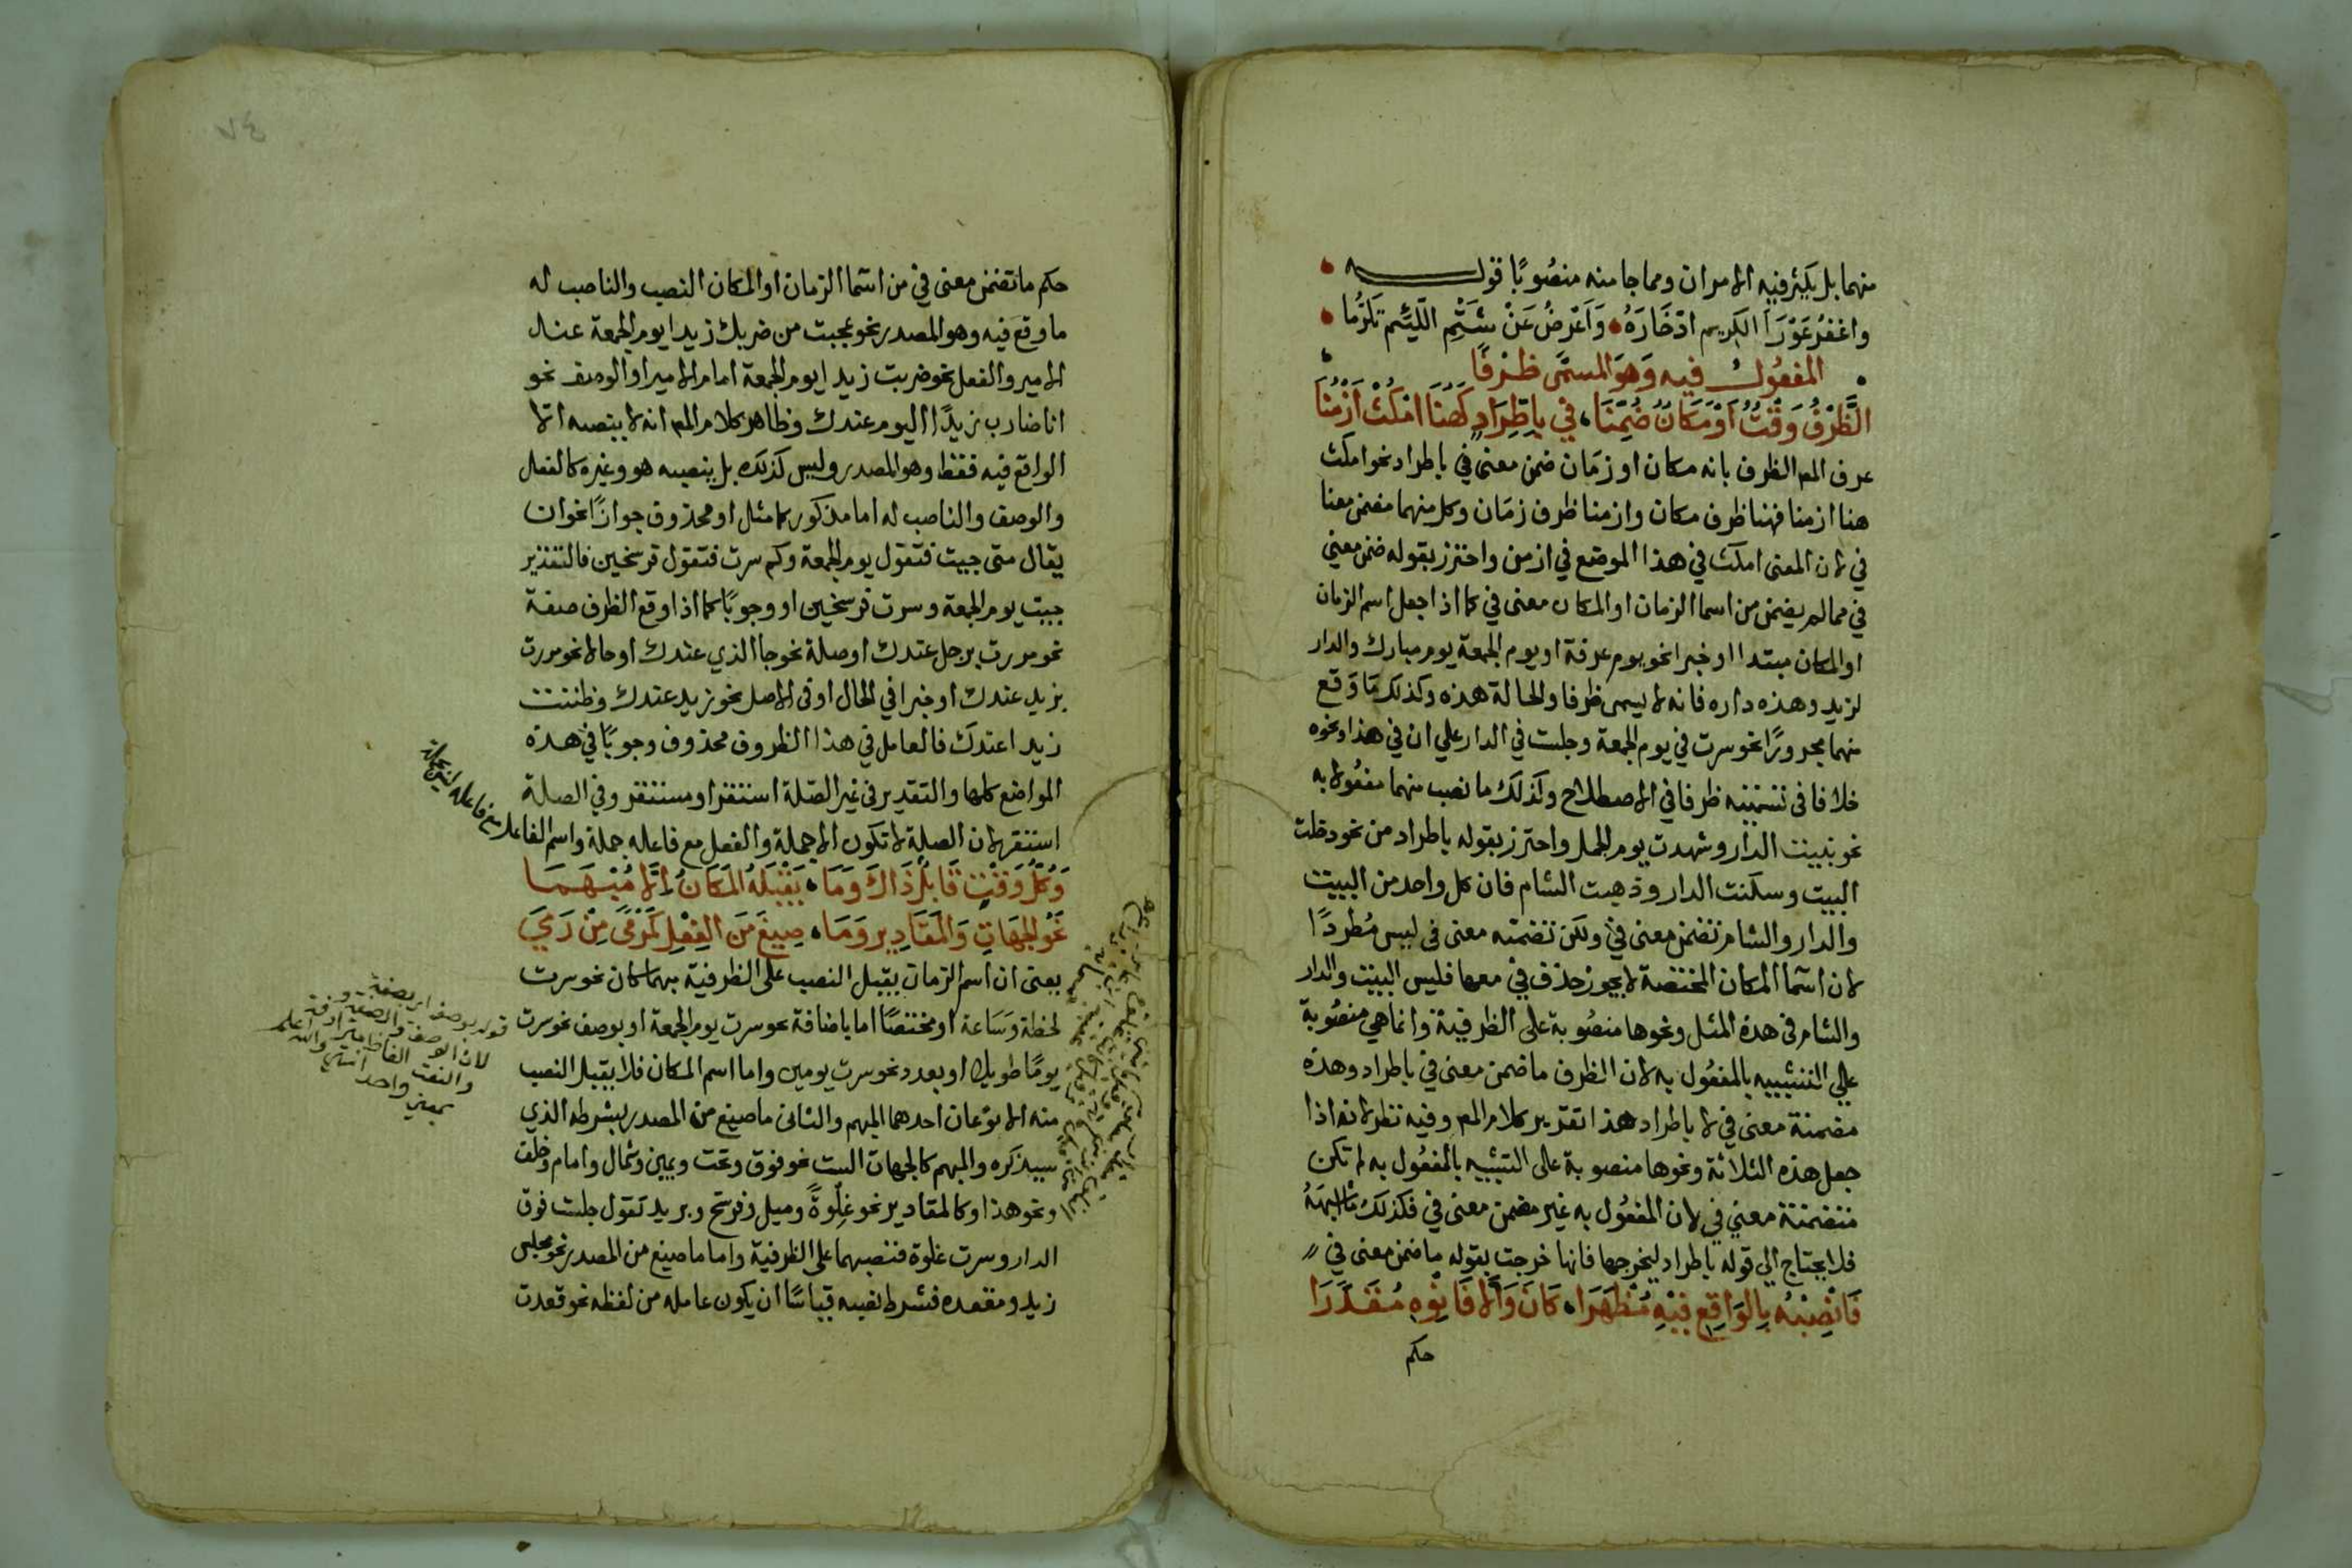 منهما بل يكثر فيه الامران ومما جا منه منصوبًا قوله
واغفرُ عَوْرَاَ الكريم ادّخَارَهُ وَاَعْرضُ عَنْ شَتْمِ اللّئيم تَكَرُّما
المفعُول فيه وَهوَ المسمَّى ظرْفًا
الظَّرْفُ وَقْتٌ اَوْ مَكَانٌ ضُمِّنَا في باطِّرَادٍ كَهُنَا امْكُثْ اَزْمُنَا
عرف المص الظرف بانه مكان او زمَان ضمن معنى في باطراد نحو امكث
هنا ازمنا فهنا ظرف مكان وازمنا ظرف زمَان وكل منهما مضمن معنا
في لان المعنى امكث في هذا الموضع في ازمن واحترز بقوله ضمن معني
في مما لم يضمن من اسما الزمان او المكان معنى في كما اذا جعل اسم الزمان
او المكان مبتدا او خبرا نحو يوم عرفة او يوم الجمعة يوم مبارك والدار
لزيد وهذه داره فانه لا يسمى ظرفا والحالة هذه وكذلك مَا وَقع
منهما مجرورًا نحو سرت في يوم الجمعة وجلست في الدار علي ان في هذا ونحوه
خلافا فى تسميته ظرفا في الاصطلاح وكذلك ما نصب منهما مفعُولا به
نحو بنيت الدار وشهدت يوم الجمل واحترز بقوله باطراد من نحو دخلت
البيت وسكنت الدار وذهبت الشام فان كل واحد من البيت
والدار والشام تضمن معنى في ولكن تضمنه معنى فى ليس مُطردًا
لان اسما المكان المختصة لا يجوز حذف في معها فليس البيت والدار
والشام فى هذه المثل ونحوها منصُوبة على الظرفية وانما هي منصُوبة
علي التشبيه بالمفعُول به لان الظرف ما ضمن معنى في باطراد وهذه
مضمنة معنى في لا باطراد هذا تقدير كلام المص وفيه نظر لانه اذا
جعل هذه الثلاثة ونحوها منصوبة على التشبيه بالمفعُول به لم تكن
متضمنة معني في لان المفعُول به غير مضمن معنى في فكذلك ما اشبهَهُ
فلا يحتاج الي قوله باطراد ليخرجها فانها خرجت بقوله ما ضمن معنى في
فَانْصِبْهُ بِالوَاقِعِ فِيْهِ مُظْهَرَا كَانَ وَاَلا فَانْوِهِ مُقَدَّرَا
حكم
حكم ما تضمن معنى في من اسما الزمان او المكان النصب والناصب له
ما وقع فيه وهو المصدر نحو عجبت من ضربك زيدا يوم الجمعة عند
الامير والفعل نحو ضربت زيدا يوم الجمعة امام الامير او الوصف نحو
انا ضارب زيدًا اليوم عندك وظاهر كلام المص انه لا ينصبه الا
الواقع فيه فقط وهو المصدر وليس كذلك بل ينصبه هو وغيره كالفعل
والوصف والناصب له اما مذكور كما مثل او محذوف جوازًا نحو ان
يقال متى جيت فتقول يوم الجمعة وكم سرت فتقول فرسخين فالتقدير
جيت يوم الجمعة وسرت فرسخين او وجوبًا كما اذا وقع الظرف صفة
نحو مررت برجل عندك او صلة نحو جا الذي عندك او حالا نحو مررت
بزيد عندك او خبرا في الحال او فى الاصل نحو زيد عندك وظننت
زيدا عندك فالعامل في هذا الظروف محذوف وجوبًا في هذه
المواضع كلها والتقدير فى غير الصّلة استقر او مستقر وفي الصلة
استقر لان الصلة لا تكون الا جملة والفعل مع فاعله جملة واسم الفاعل مع فاعله ليس بجملة
وَكُلُّ وَقْتٍ قَابِلٌ ذَاكَ وَمَا يَقْبَلهُ المَكَانُ اِلَّا مُبْهَمَا
نَحْوُ الجِهَاتِ وَالمَقَادِيرِ وَمَا صِيغَ مَنَ الفِعْلِ كَمَرْمًى مِنْ رَمَي
يعني ان اسم الزمان يقبل النصب على الظرفية مبهما كان نحو سرت
لحظة وسَاعة او مختصًا اما باضافة نحو سرت يوم الجمعة او بوصف نحو سرت
يومًا طويلا او بعدد نحو سرت يومين واما اسم المكان فلا يقبل النصب
منه الا نوعان احدهما المبهم والثانى ما صيغ من المصدر بشرطه الذي
سيذكره والمبهم كالجهات الست نحو فوق وتحت ويمين وشمال وامام وخلف
ونحو هذا وكالمقادير نحو غلْوةً وميل وفرسخ وبريد تقول جلست فوق
الدار وسرت غلوة فتنصبهما على الظرفية واما ما صيغ من المصدر نحو مجلس
زيد ومقعده فشرط نصبه قياسًا ان يكون عامله من لفظه نحو قعدت
قوله بوصف اي بصفة
لان الوصف والصفة
والنعت الفاظ مترادفة
بمعني واحد انتهى والله اعلم
٧٤